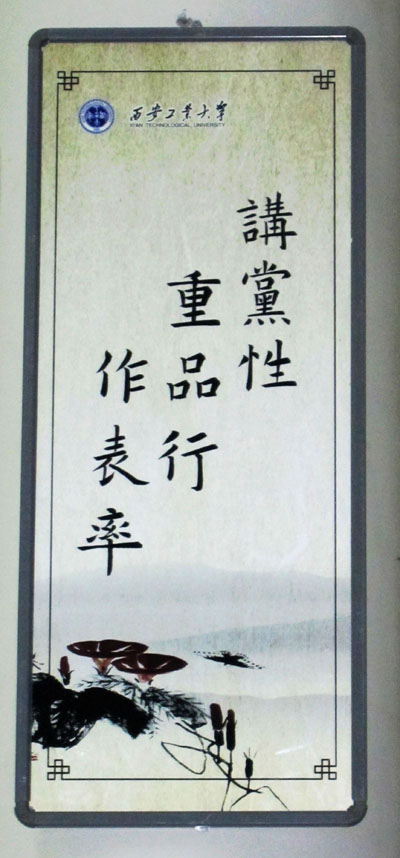 西安工业大学
XI'AN TECHNOLOGICAL UNIVERSITY
講黨性
重品行
作表率